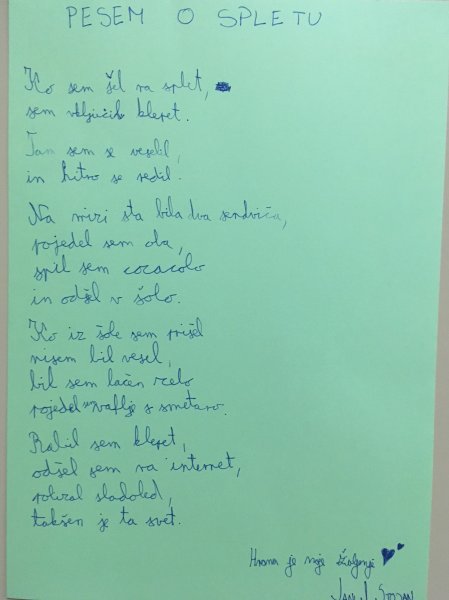 PESEM O SPLETU
Ko sem šel na splet,
sem vključih klepet.
Tam sem se veselil,
in hitro se redil.
Na mizi sta bila dva sendviča,
pojedel sem oba,
spil sem cocacolo
in odšel v šolo.
Ko iz šole sem prišel
nisem bil vesel,
bil sem lačen zelo
pojedel vaflje s smetano.
Rabil sem klepet,
odšel sem na internet,
polizal sladoled,
takšen je ta svet.
Hrana je moje življenje